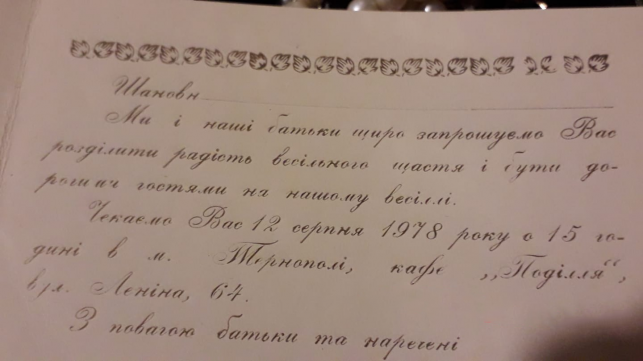 Шановн
Ми і наші батьки щиро запрошуємо Вас
розділити радість весільного щастя і бути до-
рогими гостями на нашому весіллі.
Чекаємо Вас 12 серпня 1978 року о 15 го-
дині в м. Тернополі, кафе „Поділля“,
вул. Леніна, 64.
З повагою батьки та наречені